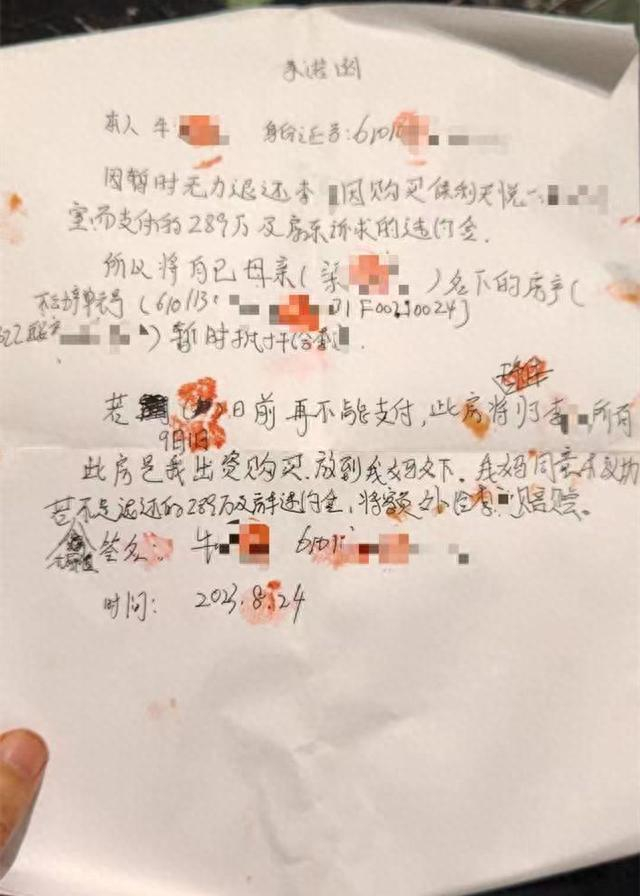 承诺函
本人 牛 身份证号:6101
因暂时无力退还李 因购买保利天悦一
室而支付的289万及房东诉求的违约金.
所以将自己母亲(梁 )名下的房产(
不动产单元号(610113 01F00210024)
)暂时抵押给李 .
若 日前再不能支付,此房将归李 所有
9月1日
此房是我出资购买.放到我妈名下.我妈同意
若不足退还的289万及房东违约金,将额外给李 赔赏。
签名: 牛 6101
时间: 2023.8.24